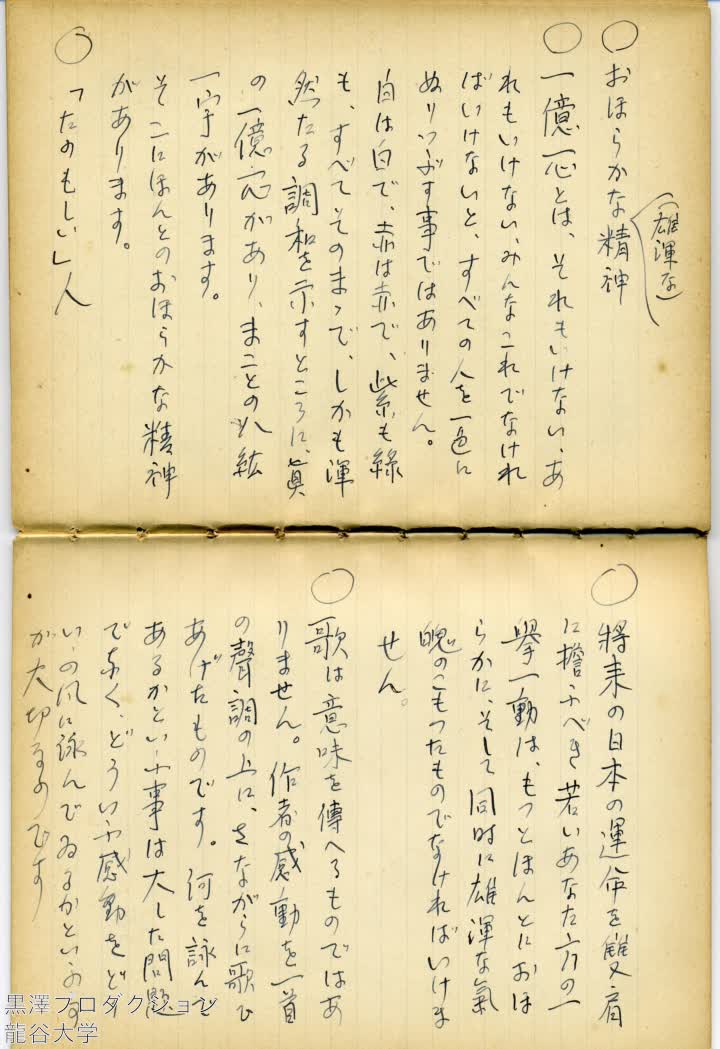 ○ おほらかな精神
(雄渾な)
○ 一億一心とは、それもいけない、あ
れもいけない、みんなこれでなけれ
ばいけないと、すべての人を一色に
ぬりつぶす事ではありません。
白は白で、赤は赤で、紫も緑
も、すべてそのまゝで、しかも渾
然たる調和を示すところに、眞
の一億一心があり、まことの八紘
一宇があります。
そこにほんとのおほらかな精神
があります。
○ 「たのもしい」人
○ 將来の日本の運命を雙肩
に擔ふべき若いあなた方の一
擧一動は、もつとほんとにおほ
らかに、そして同時に雄渾な氣
魄のこもつたものでなければいけま
せん。
○ 歌は意味を傳へるものではあ
りません。作者の感動を一首
の聲調の上に、さながらに歌ひ
あげたものです。何を詠んで
あるかといふ事は大した問題
でなく、どういふ感動をど
ういふ風に詠んでゐるかといふ事
が大切なのです
黒澤プロダクション
龍谷大学